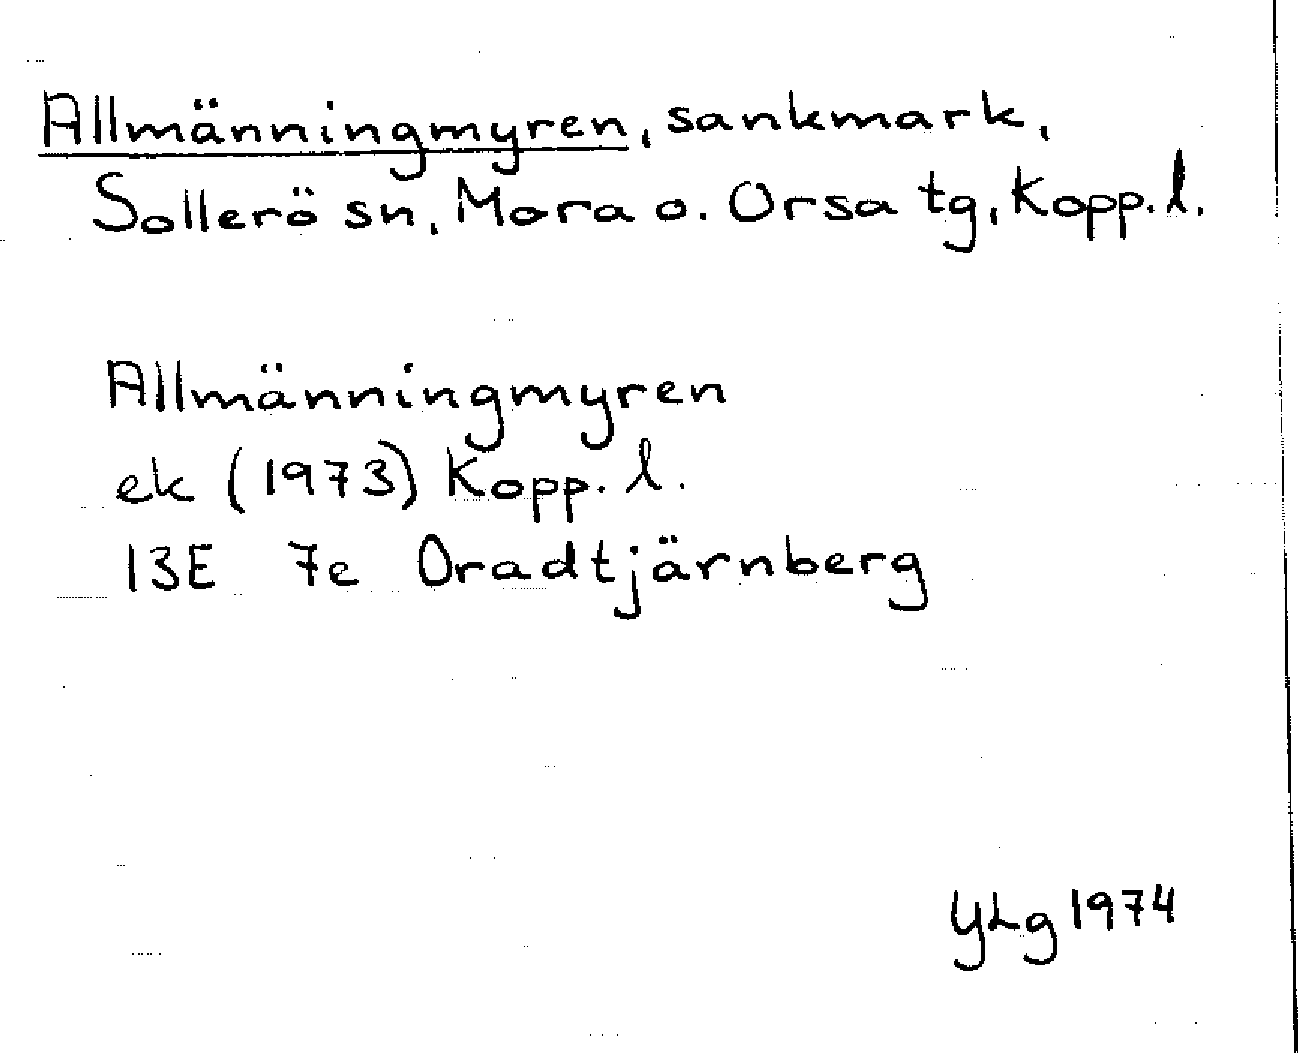 Allmänningmyren, sankmark,
Sollerö sn, Mora o. Orsa tg, Kopp. l.
Allmänningmyren
ek (1973) Kopp. l.
13E 7e Oradtjärnberg
YLg 1974